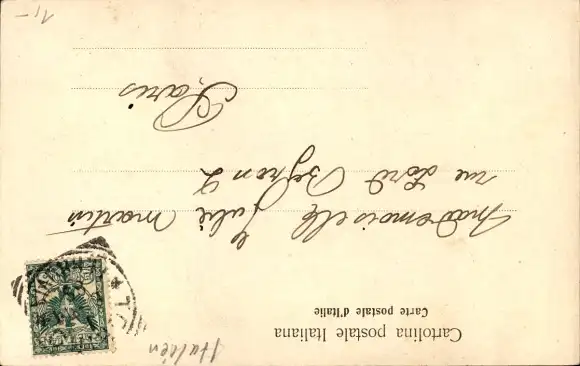 Cartolina postale Italiana
Carte postale d'Italie
Mademoiselle Julie Martin
rue Lord Byron 2
Paris
Italien
1,-